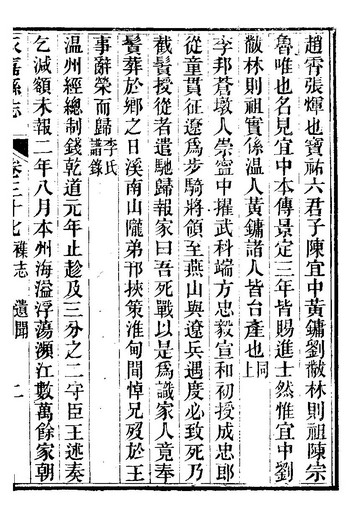 趙霄張煇也寶祐六君子陳宜中黃鏞劉黻林則祖陳宗
魯唯也名見宜中本傳景定三年皆賜進士然惟宜中劉
黻林則祖實係温人黃鏞諸人皆台產也同上
李邦蒼墩人崇寧中擢武科端方忠毅宣和初授成忠郎
從童貫征遼爲步騎將領至燕山與遼兵遇度必致死乃
截鬢授從者遣馳歸報家曰吾死戰以是爲識家人竟奉
鬢葬於鄉之日溪南山隴弟邗挾策淮甸間悼兄歿於王
事辭榮而歸李氏譜錄
温州經總制錢乾道元年止趁及三分之二守臣王逨奏
乞減額未報二年八月本州海溢浮蕩瀕江數萬餘家朝
永嘉縣志 卷三十七 雜志 遺聞 二